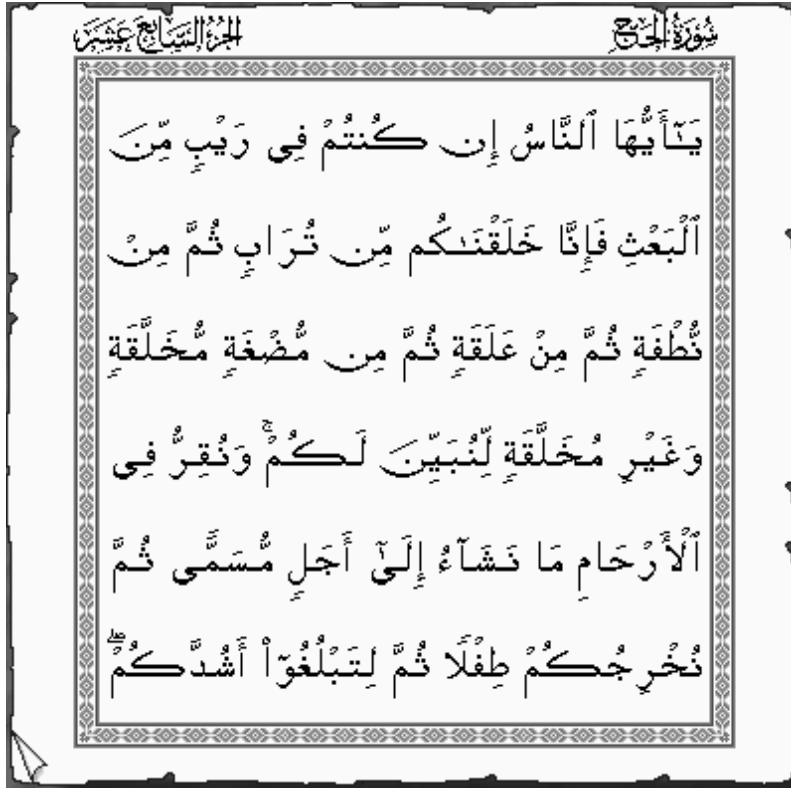 سُورَةُ الْحَجِّ الجُزْءُ السَّابِعَ عَشَرَ
يَـٰٓأَيُّهَا ٱلنَّاسُ إِن كُنتُمْ فِى رَيْبٍ مِّنَ
ٱلْبَعْثِ فَإِنَّا خَلَقْنَـٰكُم مِّن تُرَابٍ ثُمَّ مِن
نُّطْفَةٍ ثُمَّ مِنْ عَلَقَةٍ ثُمَّ مِن مُّضْغَةٍ مُّخَلَّقَةٍ
وَغَيْرِ مُخَلَّقَةٍ لِّنُبَيِّنَ لَكُمْ ۚ وَنُقِرُّ فِى
ٱلْأَرْحَامِ مَا نَشَآءُ إِلَىٰٓ أَجَلٍ مُّسَمًّى ثُمَّ
نُخْرِجُكُمْ طِفْلًا ثُمَّ لِتَبْلُغُوٓا۟ أَشُدَّكُمْ ۖ